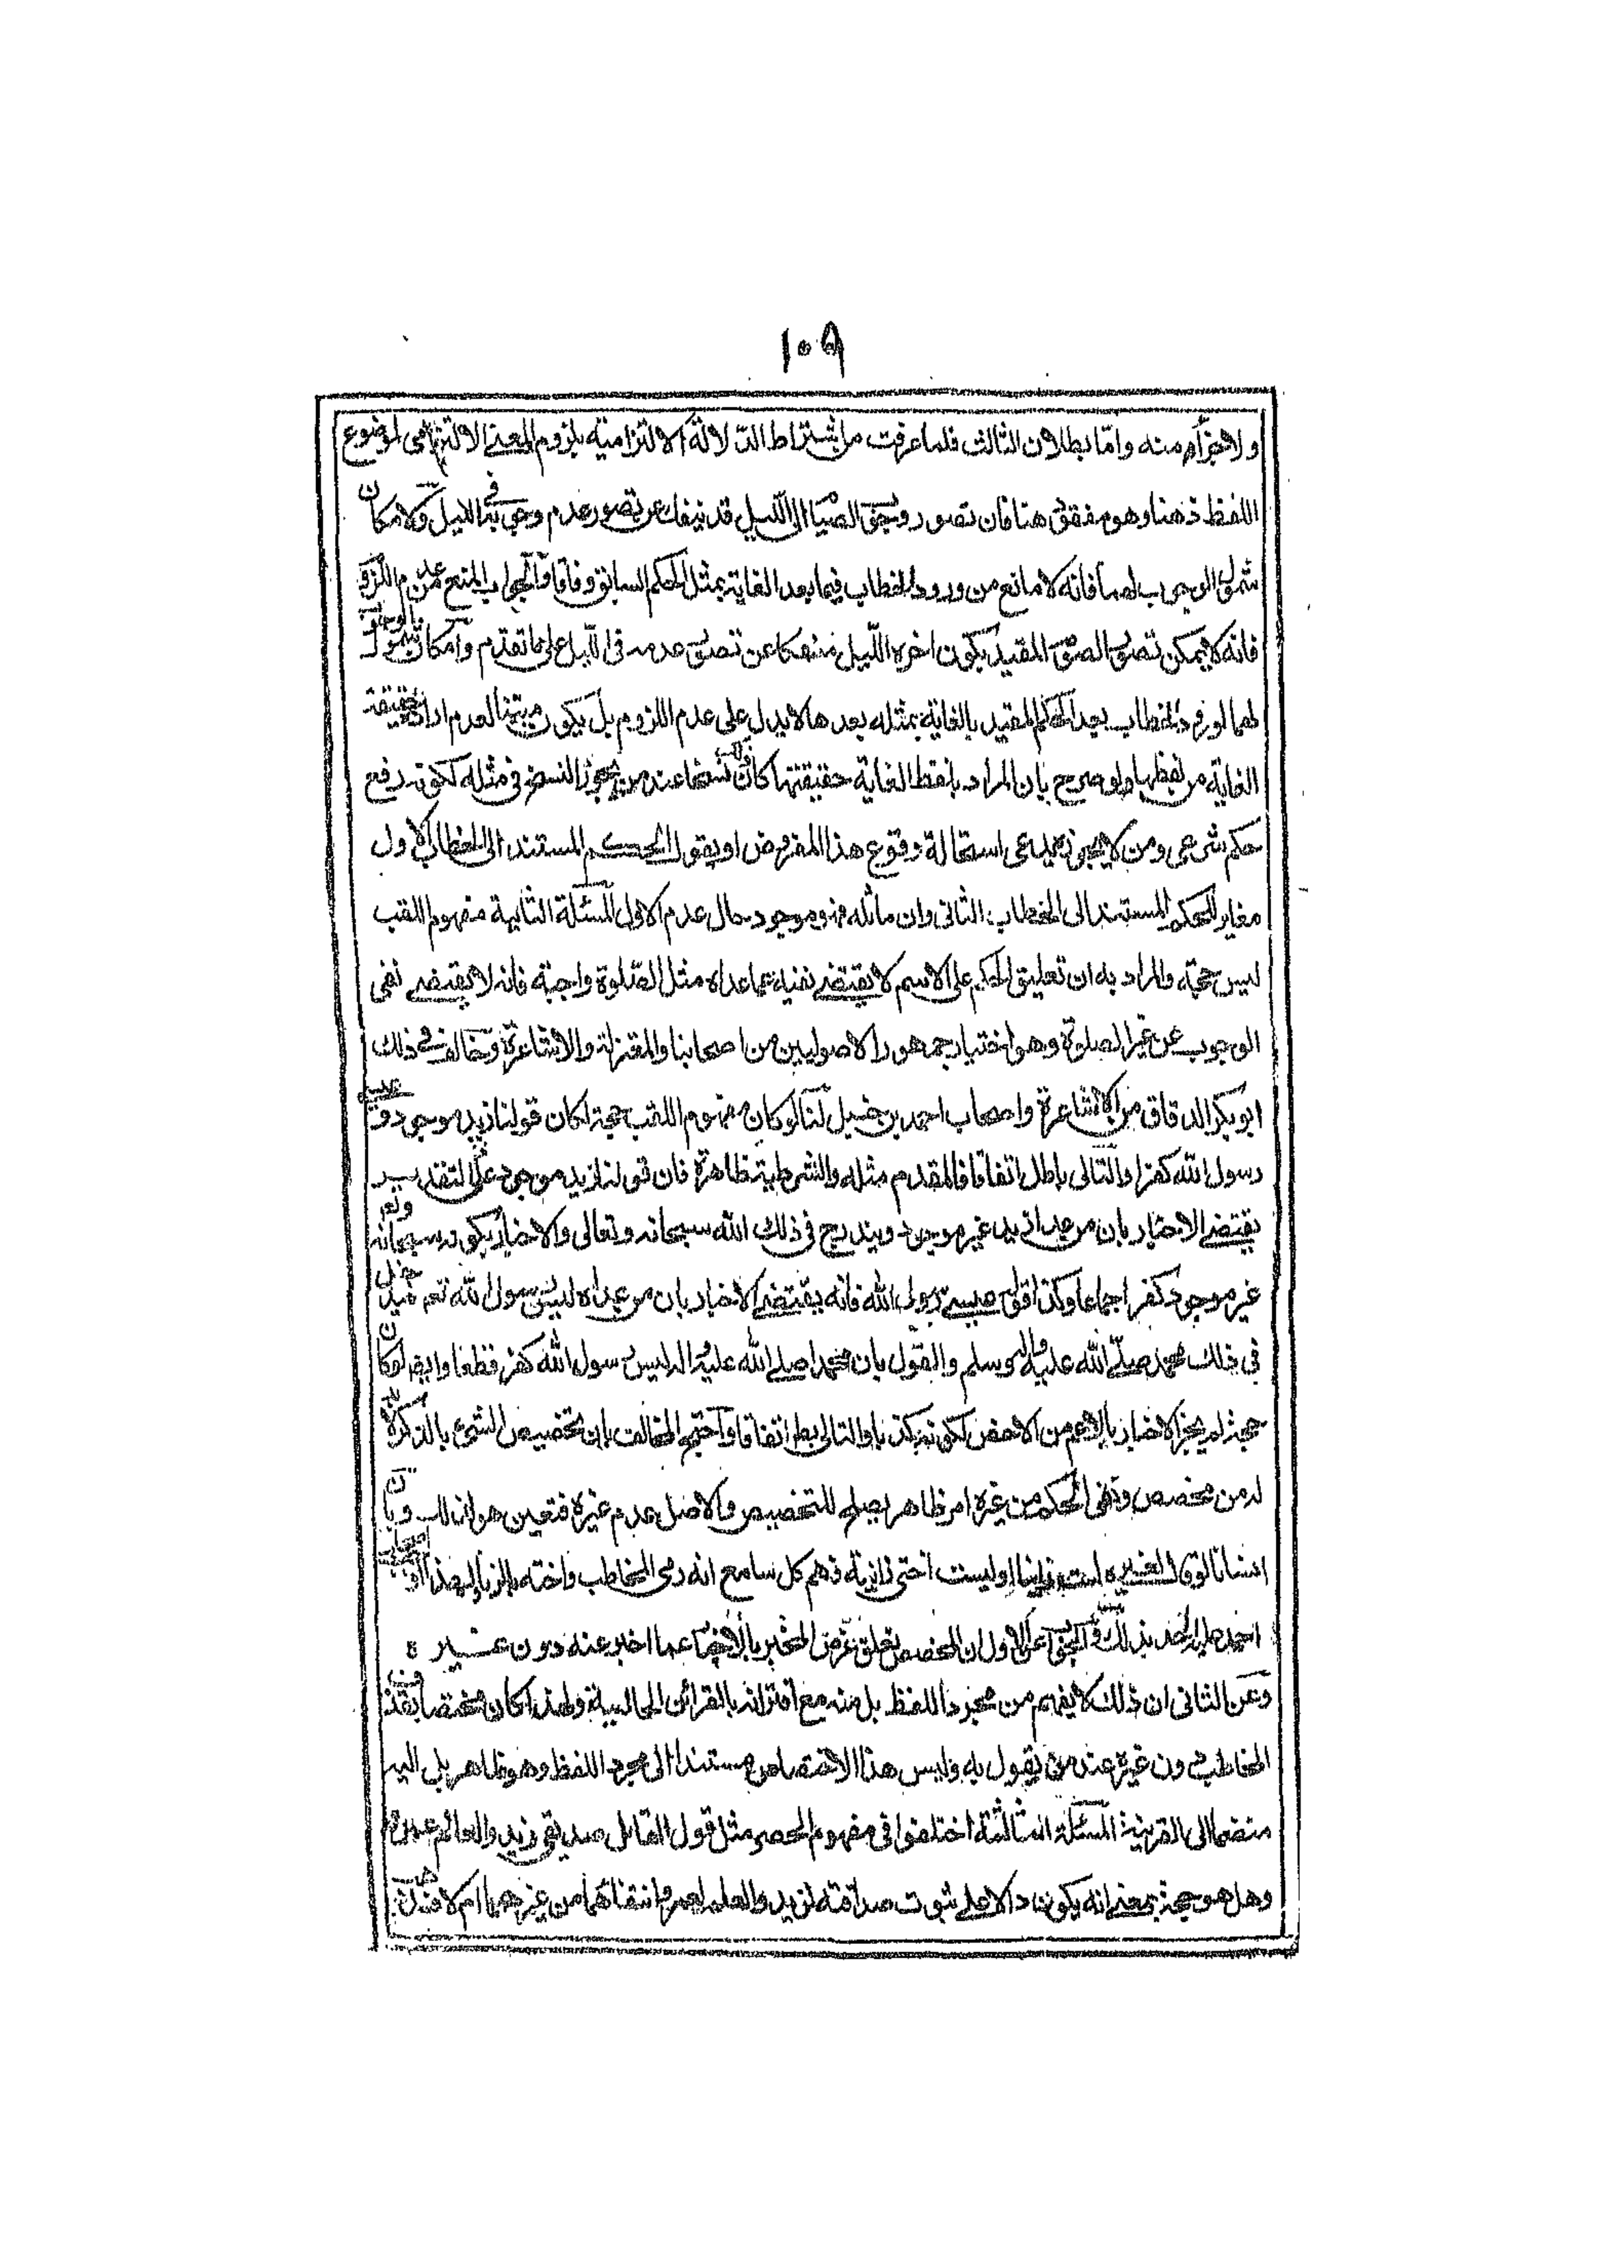 ١٠٩
ولا جزأ منه واما بطلان الثالث فلما عرفت من اشتراط الدلالة الالتزامية بلزوم المعنى الالتزامى لموضوع
اللفظ ذهنا وهو مفقود هنا فان تصور وجوب الصيام الى الليل قد ينفك عن تصور عدم وجوبه فى الليل ولامكان
شمول الوجوب لهما فانه لا مانع من ورود الخطاب فيما بعد الغاية بمثل الحكم السابق وفاقا والجواب المنع من عدم اللزوم
فانه لا يمكن تصور الصوم المقيد بكون اخره الليل منفكا عن تصور عدمه فى الليل على ما تقدم وامكان شمول الوجوب
لهما لورود الخطاب بعد الحكم المقيد بالغاية بمثله بعدها لا يدل على عدم اللزوم بل يكون مبينا لعدم ارادة حقيقة
الغاية من لفظها ولو صرح بان المراد بلفظ الغاية حقيقتها كان نسخا عند من يجوز النسخ فى مثله لكونه رفع
حكم شرعى ومن لا يجوزه يدعى استحالة وقوع هذا المفروض او يقول الحكم المستند الى الخطاب الاول
مغاير للحكم المستند الى الخطاب الثانى وان ماثله فهو موجود حال عدم الاول المسئلة الثانية مفهوم اللقب
ليس حجة والمراد به ان تعليق الحكم على الاسم لا يقتضى نفيه عما عداه مثل الصلوة واجبة فانه لا يقتضى نفى
الوجوب عن غير الصلوة وهو اختيار جمهور الاصوليين من اصحابنا والمعتزلة والاشاعرة وخالف فى ذلك
ابو بكر الدقاق من الاشاعرة واصحاب احمد بن حنبل لنا لو كان مفهوم اللقب حجة لكان قولنا زيد موجود وعيسى
رسول الله كفرا والتالى باطل اتفاقا فالمقدم مثله والشرطية ظاهرة فان قولنا زيد موجود على التقدير
يقتضى الاخبار بان من عدا زيد غير موجود ويندرج فى ذلك الله سبحانه وتعالى والاخبار بكونه سبحانه وتعم
غير موجود كفر اجماعا وكذا قولنا عيسى رسول الله فانه يقتضى الاخبار بان من عداه ليس رسول الله تعم فيدخل
فى ذلك محمد صلى الله عليه واله وسلم والقول بان محمدا صلى الله عليه واله ليس رسول الله كفر قطعا وايضا لو كان
حجة لم يجز الاخبار بالاعم من الاخص لكونه كذبا والتالى بط اتفاقا واحتج المخالف بان تخصيص الشئ بالذكر لا بد
له من مخصص ونفى الحكم من غيره امر ظاهر يصلح للتخصيص والاصل عدم غيره فتعين هو لذلك وبان
انسانا لو قال لغيره لست زانيا او ليست اختى زانية فهم كل سامع انه رمى المخاطب واخته بالزنا ولهذا اوجب اصحاب
احمد عليه الحد بذلك والجواب عن الاول ان المخصص تعلق غرض المخبر بالاخبار عما اخبر عنه دون غيره
وعن الثانى ان ذلك لا يفهم من مجرد اللفظ بل منه مع اقترانه بالقرائن الحالية ولهذا كان مختصا بقذف
المخاطب دون غيره عند من يقول به وليس هذا الاختصاص مستندا الى مجرد اللفظ وهو ظاهر بل اليه
منضما الى القرينة المسئلة الثالثة اختلفوا فى مفهوم الحصر مثل قول القائل صديقى زيد والعالم عمرو
وهل هو حجة بمعنى انه يكون دالا على ثبوت صداقته لزيد والعلم لعمرو وانتفائهما من غيرهما ام لا